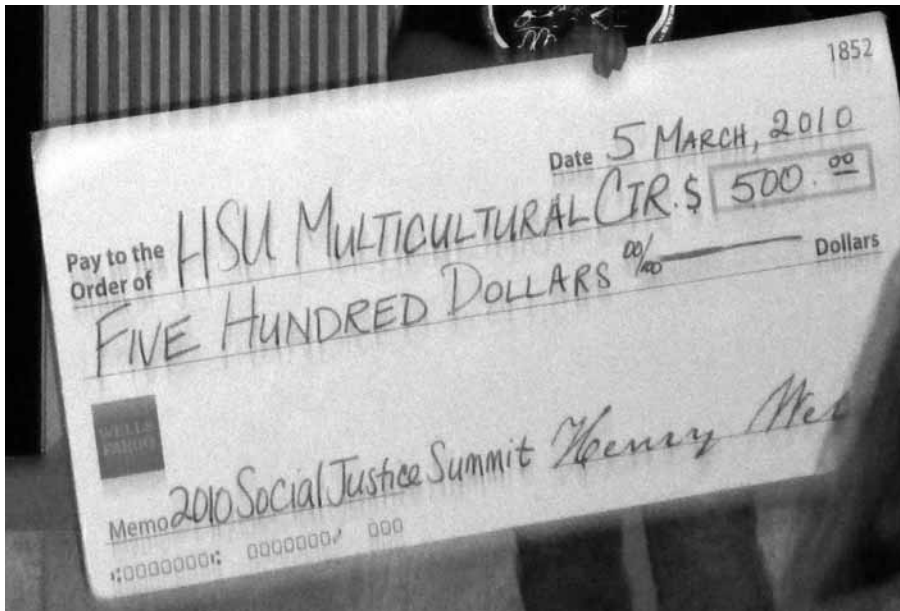 1852
Date 5 MARCH, 2010
Pay to the Order of HSU MULTICULTURAL CTR. $ 500.00
FIVE HUNDRED DOLLARS 00/100 Dollars
WELLS
FARGO
Memo 2010 Social Justice Summit Henry
⑆00000000⑆ 0000000⑇ 000